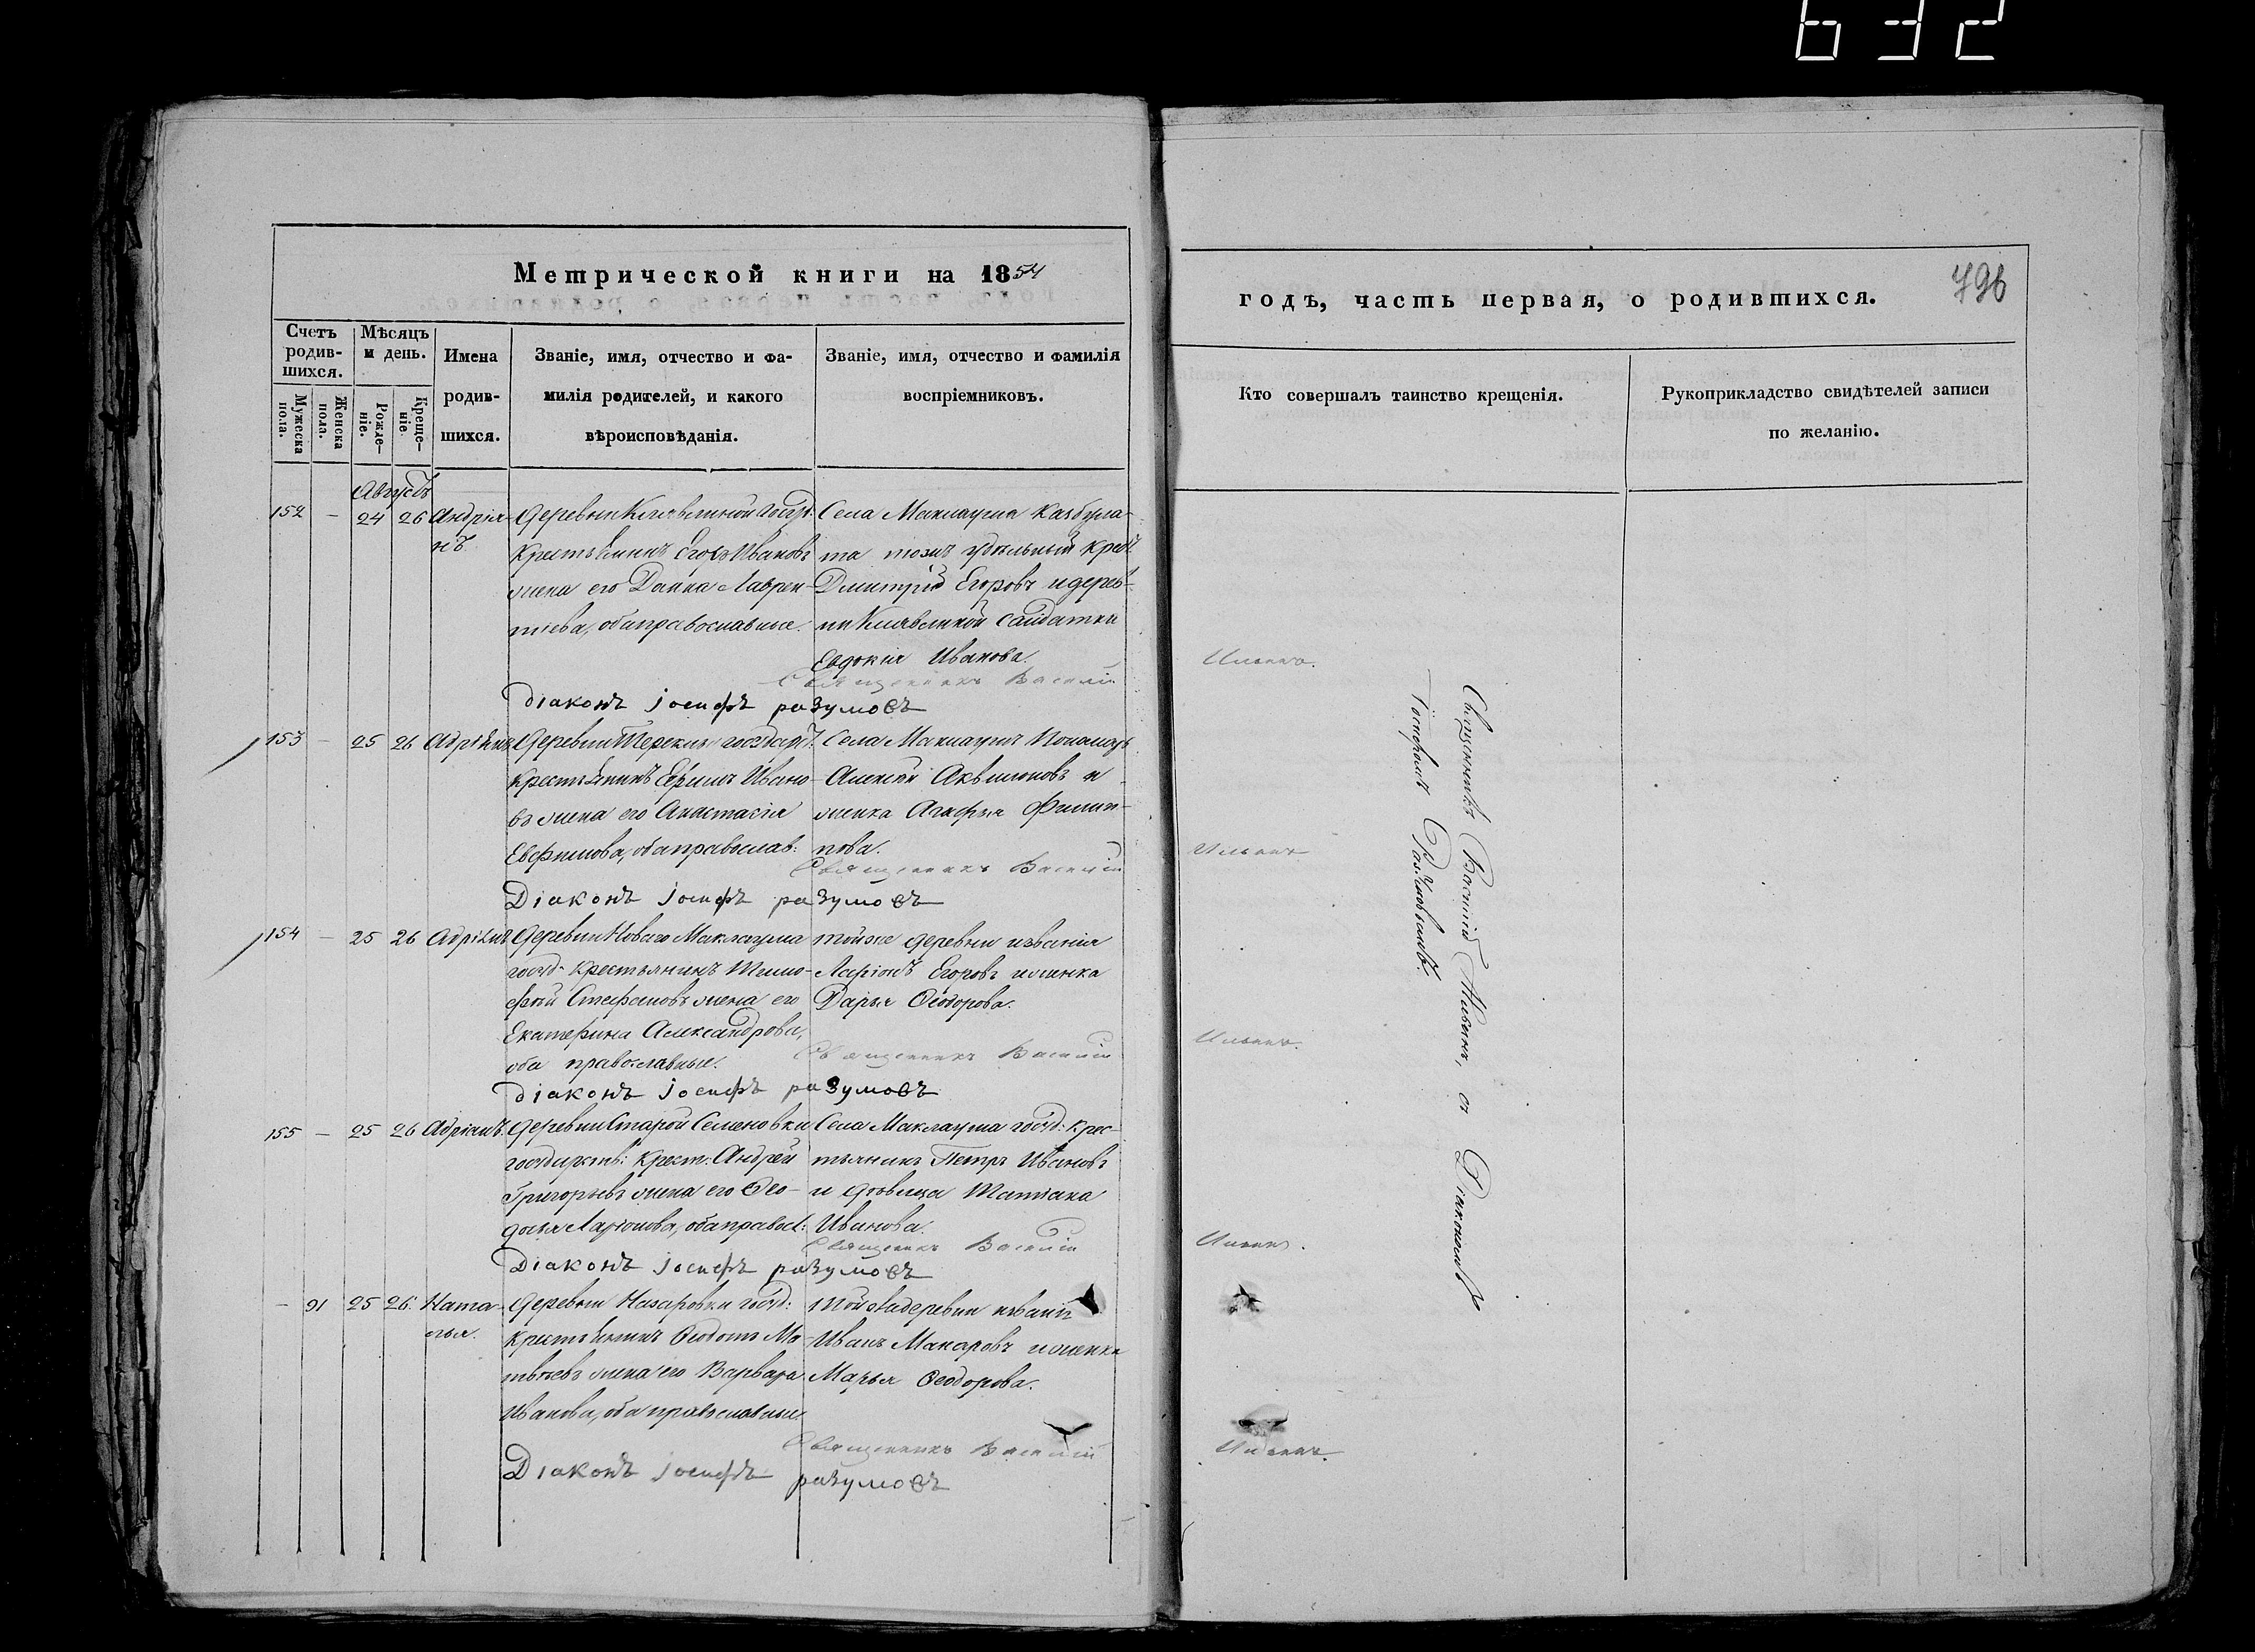 632
Метрической книги на 1854
Счетъ родившихся.
Мужеска пола.
Женска пола.
Мѣсяцъ и день.
Рожденіе.
Крещеніе.
Имена родившихся.
Званіе, имя, отчество и фамилія родителей, и какого вѣроисповѣданія.
Званіе, имя, отчество и фамилія воспріемниковъ.
годъ, часть первая, о родившихся.
796
Кто совершалъ таинство крещенія.
Рукоприкладство свидѣтелей записи по желанію.
Августъ
152 – 24 26 Андріянъ
Деревни Клявлиной госуд:
крестьянинъ Егоръ Ивановъ
жена его Лаврен-
тіева, оба православные.
Села Маклауша
та удѣльный крест:
Дмитрій Егоровъ и дерев-
ни Клявлиной салдатка
Евдокія Иванова.
Священникъ Василій Ильинъ.
Діаконъ Іосифъ разумовъ
153 – 25 26 Адріянъ
Деревни государ:
крестьянинъ Ефимъ Ивано-
въ жена его Анастасія
Евфимова, оба православ:
Села Маклауша Пономарь
Алексѣй Аквилоновъ и
женка Агафья Филип-
пова.
Священникъ Василій Ильинъ
Діаконъ Іосифъ разумовъ
154 – 25 26 Адріянъ
Деревни Новаго Маклауша
госуд: крестьянинъ Тимо-
фей Стефановъ жена его
Екатерина Александрова,
оба православные.
тойже деревни и званія
Ларіонъ Егоровъ и женка
Дарья Ѳеодорова.
Священникъ Василій Ильинъ.
діаконъ Іосифъ разумовъ
155 – 25 26 Адріянъ.
Деревни Старой Семеновки
государств: крест: Андрей
Григорьевъ жена его Ѳео-
досья Ларіонова, оба правосл:
Села Маклауша госуд: крес-
тьянинъ Петръ Ивановъ
и дѣвица Татіана
Иванова.
Священникъ Василій Ильинъ.
Діаконъ Іосифъ разумовъ
– 91 25 26 Ната-
лья.
Деревни Назаровки госуд:
крестьянинъ Ѳедотъ Ма-
твѣевъ жена его Варвара
Иванова, оба православные
Той же деревни и званія
Иванъ Макаровъ и женка
Марья Ѳеодорова.
Священникъ Василій Ильинъ.
Діаконъ Іосифъ разумовъ
Священникъ Василій Ильинъ, съ Діакономъ
Іосифомъ Разумовымъ.